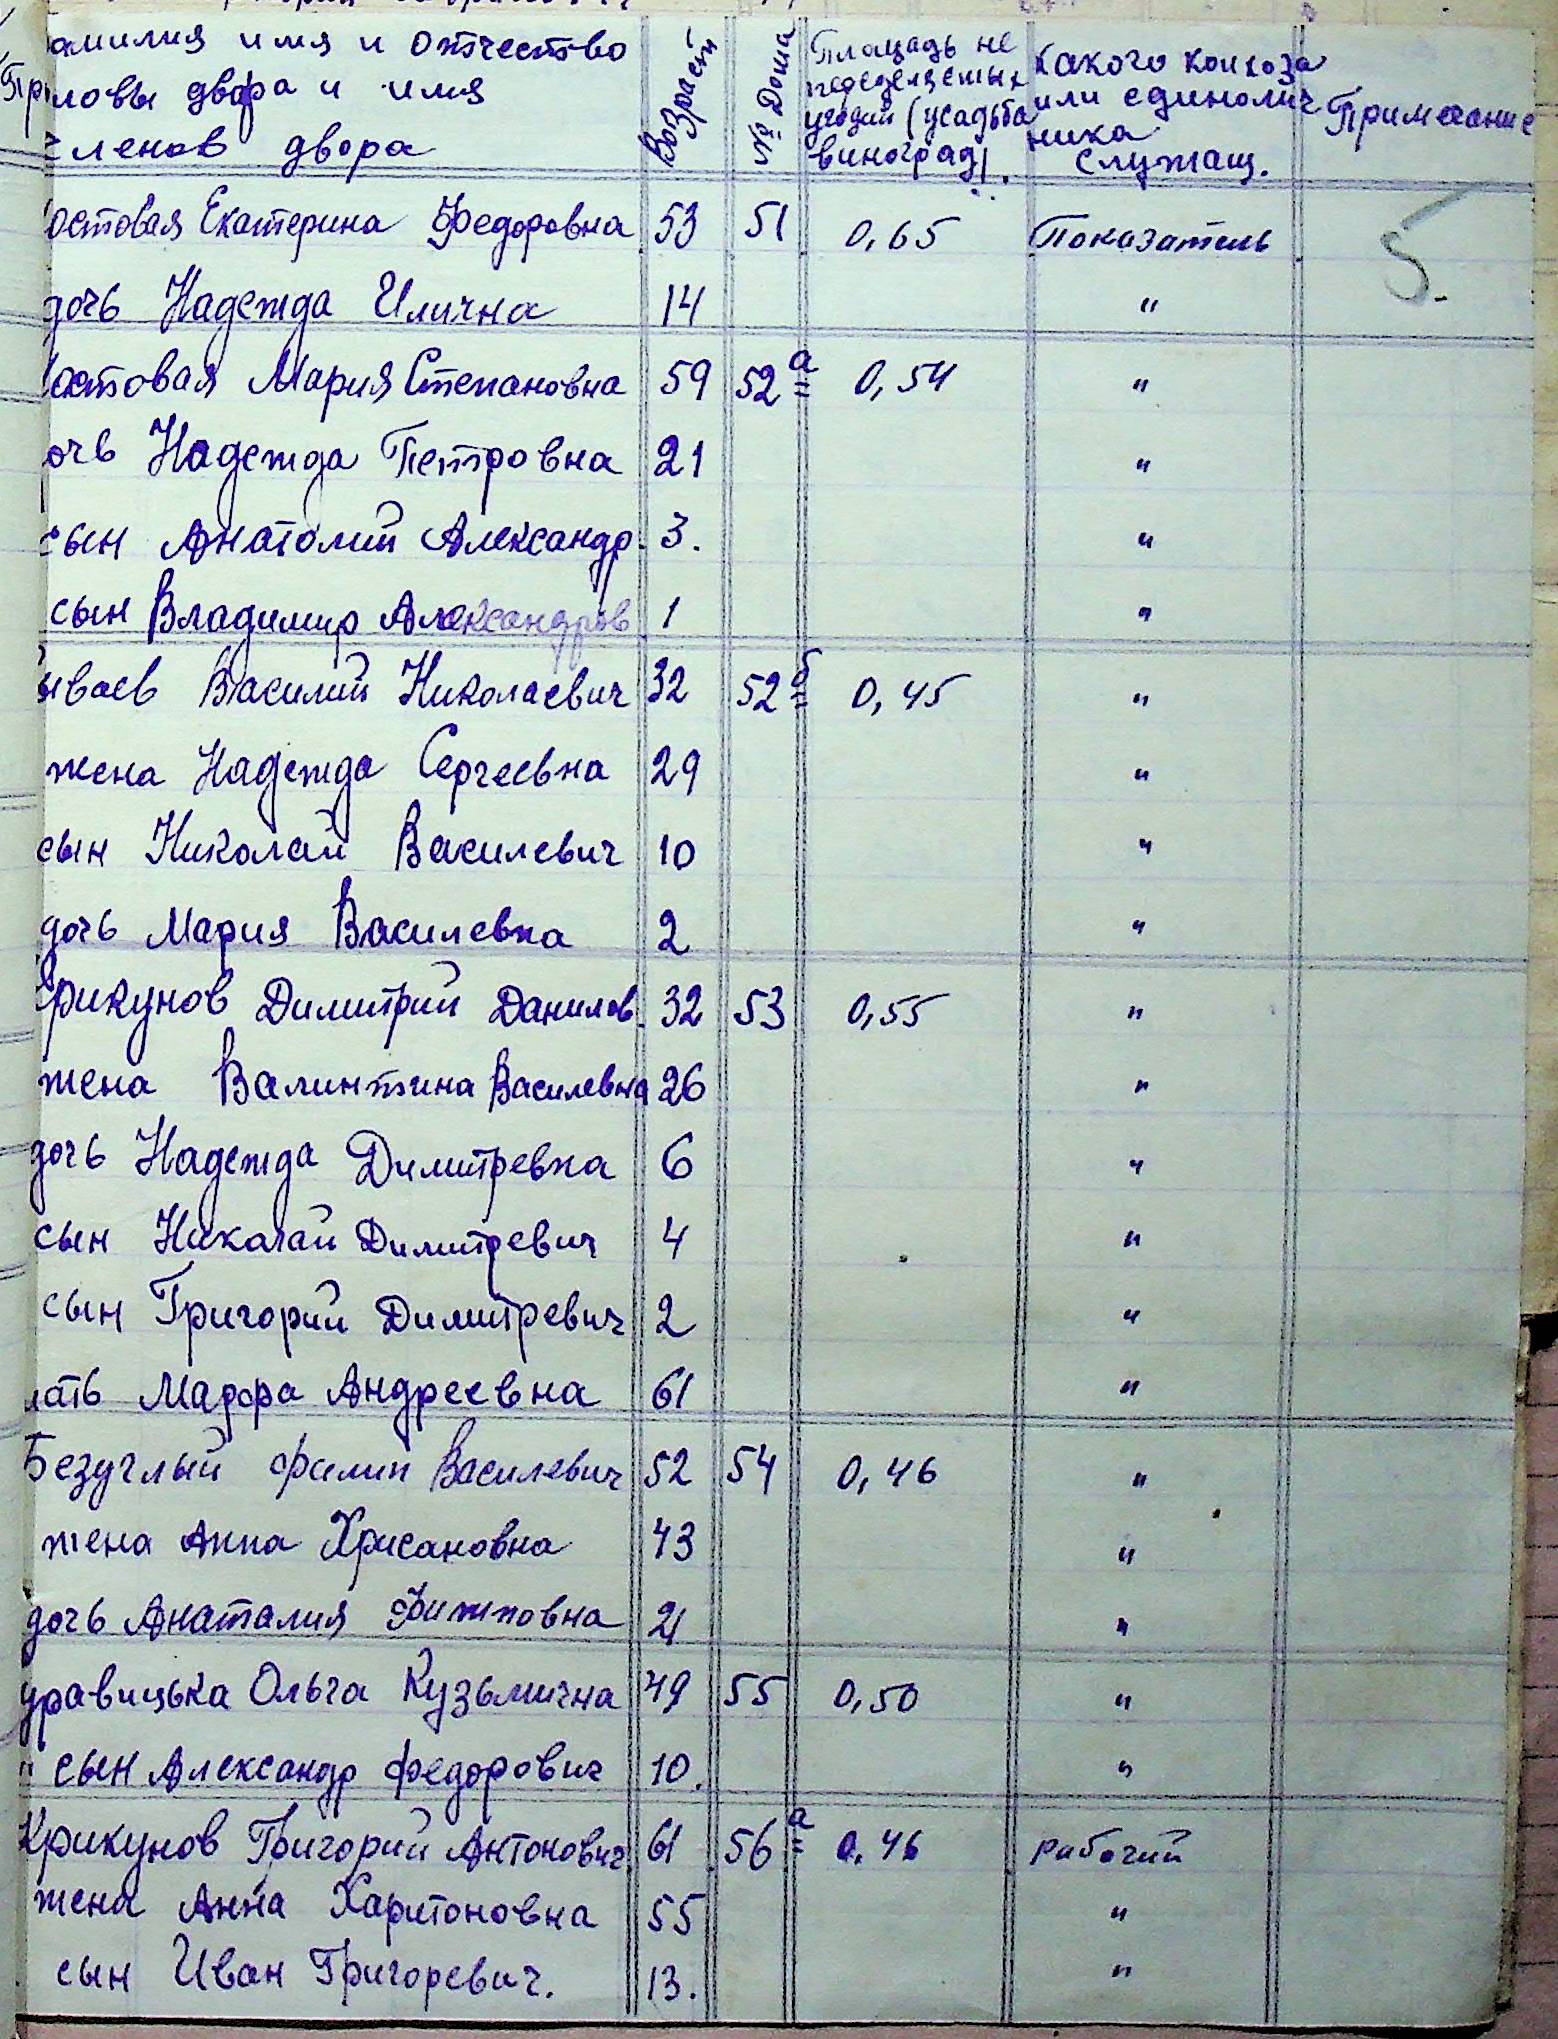 амилия имя и отчество Возраст № Дома Площадь не переделяемых угодий (усадьба виноград). какого колхоза или единолич ника служащ. Примечание
ловы двора и имя
членов двора
остовая Екатерина Федоровна 53 51 0,65 Показатель 5.
дочь Надежда Илична 14 "
остовая Мария Степановна 59 52а 0,54 "
очь Надежда Петровна 21 "
сын Анатолий Александр. 3. "
сын Владимир Александров 1 "
ываев Василий Николаевич 32 52б 0,45 "
жена Надежда Сергеевна 29 "
сын Николай Василевич 10 "
дочь Мария Василевна 2 "
Крикунов Димитрий Данилов. 32 53 0,55 "
жена Валинтина Василевна 26 "
дочь Надежда Димитревна 6 "
сын Николай Димитревич 4 "
сын Григорий Димитревич 2 "
мать Марфа Андреевна 61 "
Безуглый Филип Василевич 52 54 0,46 "
жена Анна Хрисановна 43 "
дочь Анаталия Филиповна 21 "
уравицька Ольга Кузьмична 49 55 0,50 "
" сын Александр Федорович 10. "
Крикунов Григорий Антонович 61 56а 0,46 рабочий
жена Анна Харитоновна 55 "
сын Иван Григоревич. 13. "